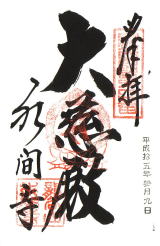 奉拝
大慈殿
永間寺
平成拾五年 月九日